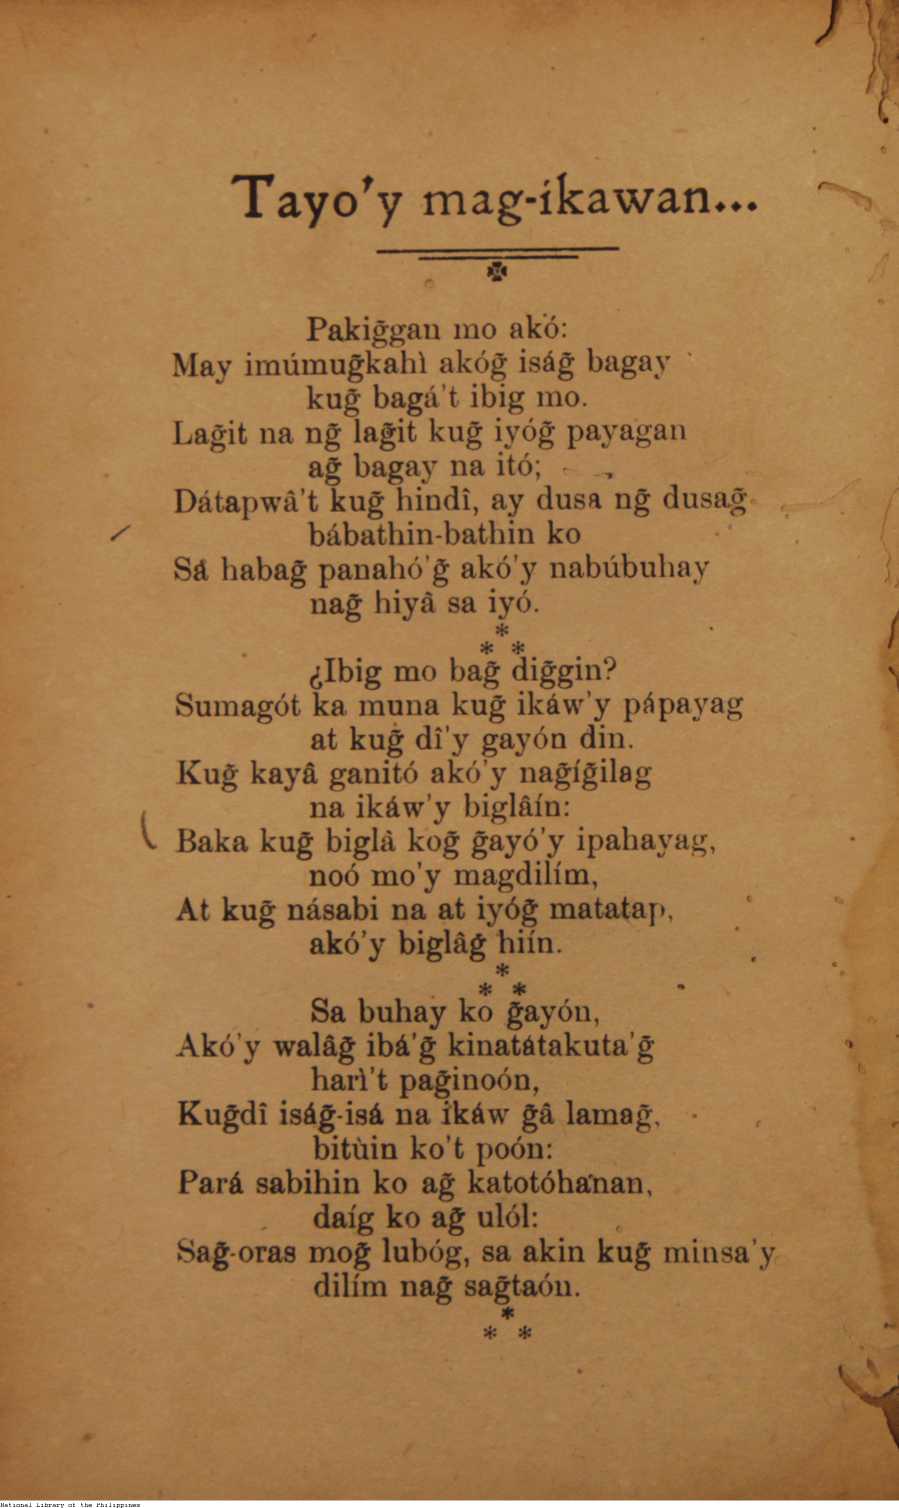 Tayo'y mag-íkawan...
Pakig̃gan mo akó:
May imúmug̃kahì akóg̃ iság̃ bagay
kug̃ bagá't ibig mo.
Lag̃it na ng̃ lag̃it kug̃ iyóg̃ payagan
ag̃ bagay na itó;
Dátapwâ't kug̃ hindî, ay dusa ng̃ dusag̃
bábathin-bathin ko
Sá habag̃ panahó'g̃ akó'y nabúbuhay
nag̃ hiyâ sa iyó.
*
* *
¿Ibig mo bag̃ dig̃gin?
Sumagót ka muna kug̃ ikáw'y pápayag
at kug̃ dî'y gayón din.
Kug̃ kayâ ganitó akó'y nag̃íg̃ilag
na ikáw'y biglâín:
Baka kug̃ biglà kog̃ g̃ayó'y ipahayag,
noó mo'y magdilím,
At kug̃ násabi na at iyóg̃ matatap,
akó'y biglâg̃ hiín.
*
* *
Sa buhay ko g̃ayón,
Akó'y walâg̃ ibá'g̃ kinatátakuta'g̃
harì't pag̃inoón,
Kug̃dî iság̃-isá na ikáw g̃â lamag̃,
bitùin ko't poón:
Pará sabihin ko ag̃ katotóhanan,
daíg ko ag̃ ulól:
Sag̃-oras mog̃ lubóg, sa akin kug̃ minsa'y
dilím nag̃ sag̃taón.
*
* *
National Library of the Philippines